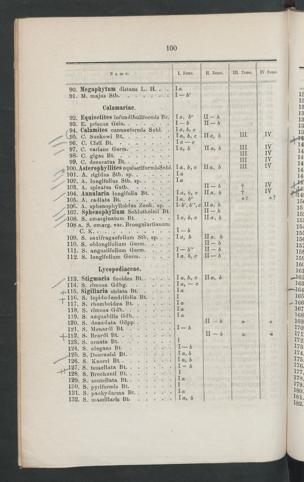 100
Name. I. Zone. II. Zone. III. Zone. IV. Zone.
90. Megaphytum distans L. H. . . I a
91. M. majus Stb. . . . . . . I — b
Calamariae.
92. Equisetites infundibuliformis Br. I a, b II — b
93. E. priscus Gein. . . . . . I — b II — b
94. Calamites cannaeformis Schl. I a, b, c
95. C. Suckowi Bt. . . . . . I a, b, c II a, b III IV
96. C. Cisti Bt. . . . . . I a — c
97. C. varians Germ. . . . . I a, b II — b III IV
98. C. gigas Bt. . . . . . III IV
99. C. decoratus Bt. . . . . III IV
100. Asterophyllites equisetiformis Schl. I a, b, c II a, b III IV
101. A. rigidus Stb. sp. . . . . I a
102. A. longifolius Stb. sp. . . . I a
103. A. spicatus Gutb. . . . . II — b † IV
104. Annularia longifolia Bt. . . . I a, b, c II a, b † IV
105. A. radiata Bt. . . . . . I a, b
106. A. sphenophylloides Zenk. sp. II a, b
107. Sphenophyllum Schlotheimi Bt. II — b
108. S. emarginatum Bt. . . . . I a, b, c II a, b
108 a. S. emarg. var. Brongniartianum
C. K. . . . . . . I — b
109. S. saxifragaefolium Stb. sp. . . I a, b II a, b
110. S. oblongifolium Germ. . . . II — b
111. S. angustifolium Germ. . . . I — b II — b
112. S. longifolium Germ. . . . . I a, b, c II — b
Lycopodiaceae.
113. Stigmaria ficoides Bt. . . . I a, b, c II a, b
114. S. rimosa Gdbg. . . . . I a, — c
115. Sigillaria striata Bt. . . . I a
116. S. lepidodendrifolia Bt. . . . I
117. S. rhomboidea Bt. . . . . I a
118. S. rimosa Gdb. . . . . . I a
119. S. aequabilis Gdb. . . . . I a
120. S. denudata Göpp. . . . . II — b
121. S. Menardi Bt. . . . . . I — b
122. S. Brardi Bt. . . . . . II — b
123. S. ornata Bt. . . . . . I
124. S. elegans Bt. . . . . . I — b
125. S. Dournaisi Bt. . . . . I a, b
126. S. Knorri Bt. . . . . . I a, b
127. S. tessellata Bt. . . . . I — b
128. S. Brochanti Bt. . . . . I
129. S. scutellata Bt. . . . . I a
130. S. pyriformis Bt. . . . . I
131. S. pachyderma Bt. . . . . I a
132. S. mamillaris Bt. . . . . I a, b